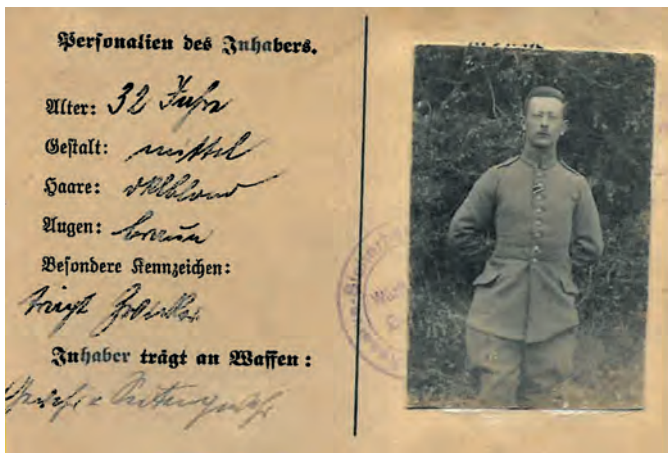 Personalien des Inhabers.
Alter: 32 Jahre
Gestalt: mittel
Haare: dklblond
Augen: braun
Besondere Kennzeichen:
trägt Zwicker
Inhaber trägt an Waffen:
Gewehr u. Seitengewehr